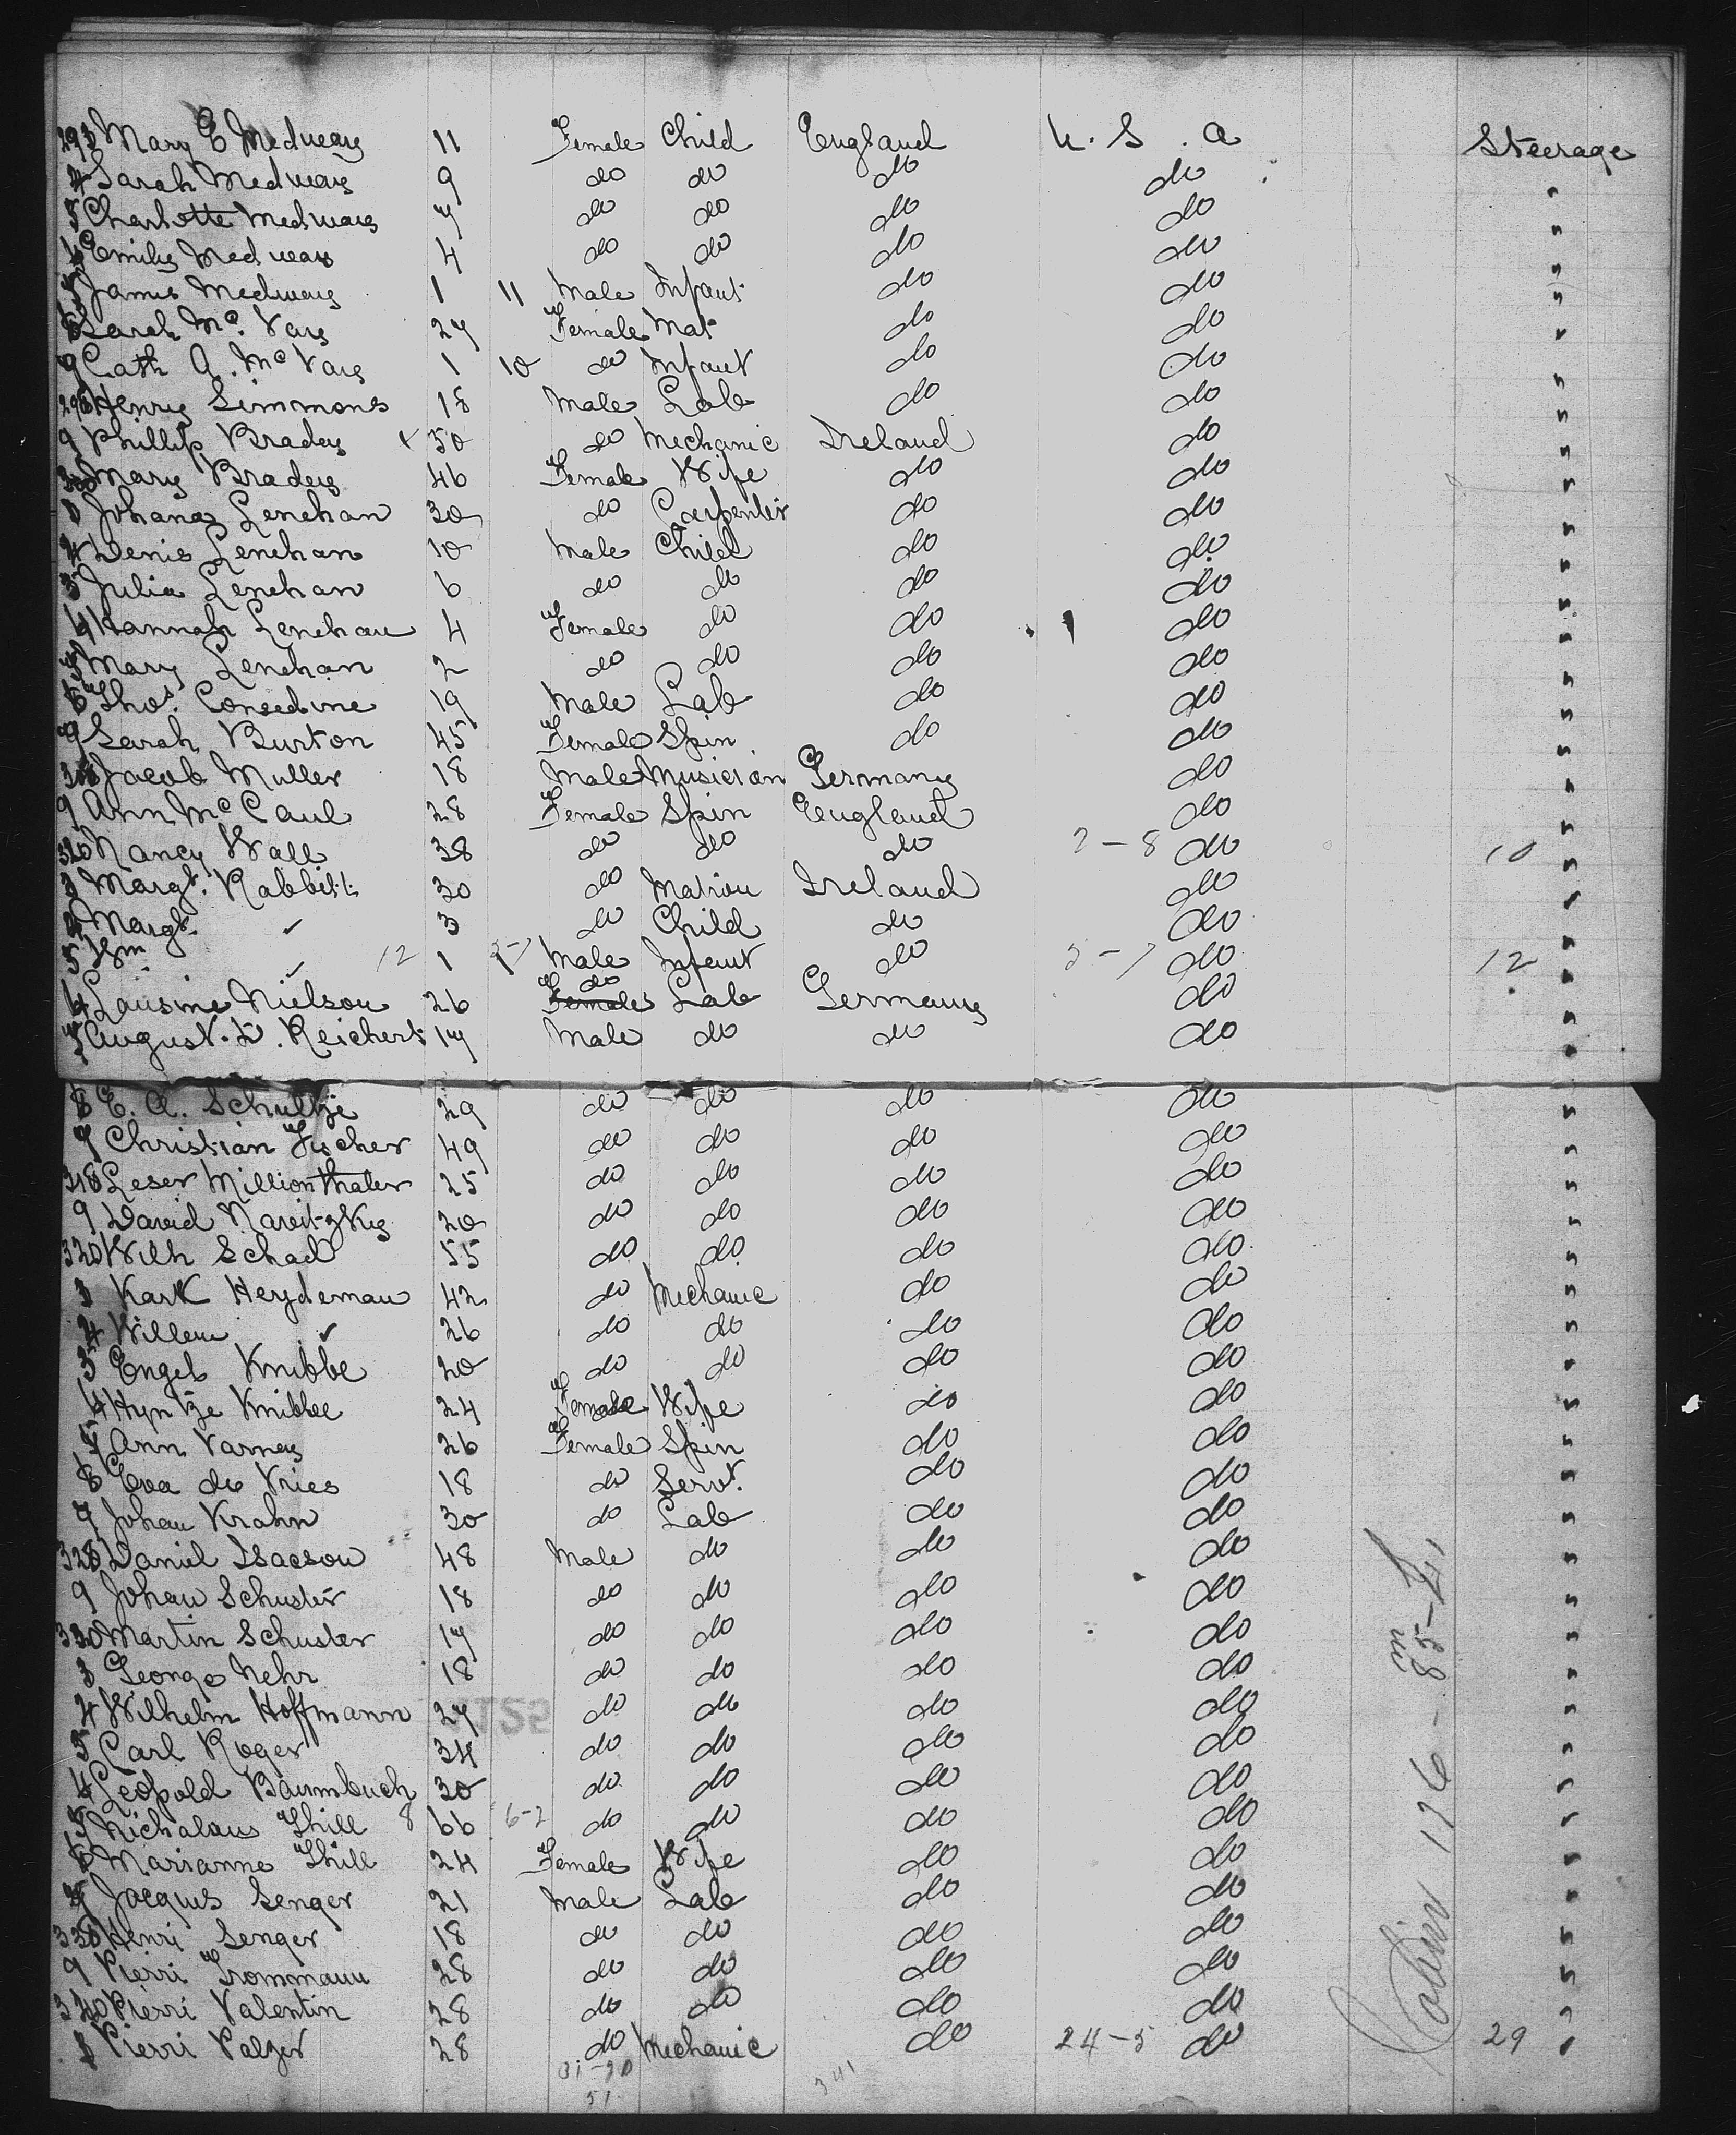 293 Mary E Medway 11 Female Child England U. S. A Steerage
4 Sarah Medway 9 do do do do "
5 Charlotte Medway 7 do do do do "
6 Emily Medway 4 do do do do "
7 James Medway 1 11 Male Infant do do "
8 Sarah Mc. Vay 27 Female Mat do do "
9 Cath A. Mc Vay 1 10 do Infant do do "
298 Henry Simmons 18 Male Lab do do "
9 Phillip Bradey 50 do Mechanic Ireland do "
300 Mary Bradey 46 Female Wife do do "
Johana Lenehan 30 do Carpenter do do "
2 Denis Lenehan 10 Male Child do do "
3 Julia Lenehan 6 do do do do "
4 Hannah Lenehan 4 Female do do do "
5 Mary Lenehan 2 do do do do "
6 Thos. Consedine 19 Male Lab do do "
Sarah Burton 45 Female Spin do do "
Jacob Muller 18 Male Musician Germany do "
9 Ann Mc Caul 28 Female Spin England do "
Nancy Wall 38 do do do 2-8 do 10 "
Margt. Rabbitt 30 do Matron Ireland do "
Margt. " 3 do Child do do "
Wm " 12 1 Male Infant do 5-7 do 12 "
Lausine Nielson 26 do Lab Germany do "
August. D. Reichert 17 Male do do do "
E. A. Schultje 29 do do do do "
Christian Fischer 49 do do do do "
318 Leser Millionthaler 25 do do do do "
9 David Naroitzky 20 do do do do "
320 Wilh Schad 55 do do do do "
Kark Heydeman 42 do Mechanic do do "
2 Willem " 26 do do do do "
3 Engel Knibbe 20 do do do do "
4 Hyntje Knibbe 24 Female Wife do do "
5 Ann Varney 26 Female Spin do do "
6 Eva de Vries 18 do Servt. do do "
7 Johan Krahn 30 do Lab do do "
328 Daniel Isacson 48 Male do do do "
9 Johan Schuster 18 do do do do "
330 Martin Schuster 17 do do do do "
George Nehr 18 do do do do "
2 Wilhelm Hoffmann 27 do do do do "
3 Carl Roger 34 do do do do "
4 Leopold Baumbuch 30 do do do do "
5 Nichalaus Thill 8 66 6-2 do do do do "
6 Marianne Thill 24 Female Wife do do "
7 Jacques Senger 21 Male Lab do do "
338 Henri Senger 18 do do do do "
9 Pierri Trommann 28 do do do do "
340 Pierri Valentin 28 do do do do "
Pierri Palzer 28 do Mechanic do 24-5 do 29 "
31-20
51
341